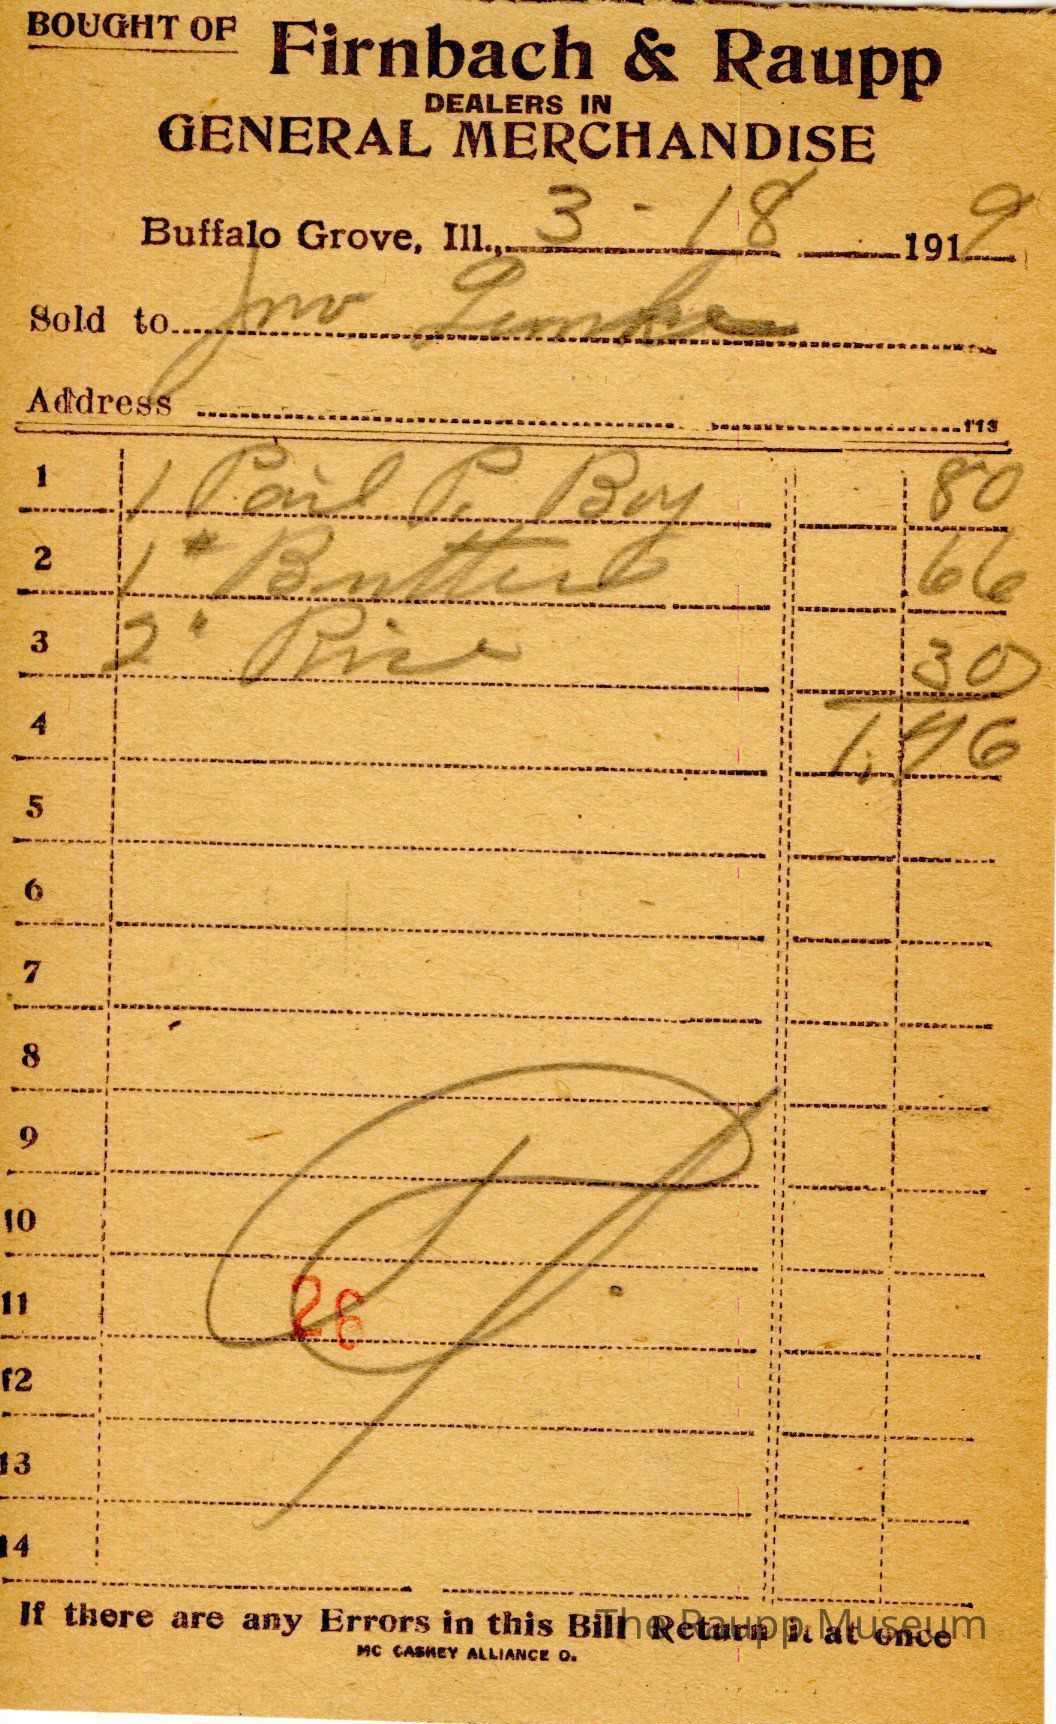 BOUGHT OF Firnbach & Raupp
DEALERS IN
GENERAL MERCHANDISE
Buffalo Grove, Ill., 3 - 18 1919
Sold to Jno Lemke
Address
113
1 1 Pail P. Boy 80
2 1# Butter 66
3 2" Rice 30
4 1.76
5
6
7
8
9
10
11 28
12
13
14
If there are any Errors in this Bill Return it at once
MC CASKEY ALLIANCE O.
The Raupp Museum